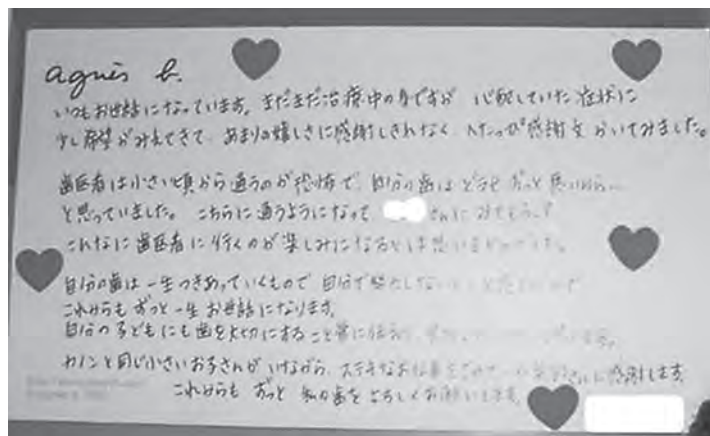 agnès b.
いつもお世話になっています。まだまだ治療中の身ですが 心配していた症状に
少し希望がみえてきて、あまりの嬉しさに感謝しきれなく、へたっぴ感謝文かいてみました。
歯医者は小さい頃から通うのが恐怖で、自分の歯はどうせずっと悪いから…
と思っていました。こちらに通うようになって さんにみてもらって
こんなに歯医者に行くのが楽しみになるとは思いませんでした。
自分の歯は一生つきあっていくもので、自分で
これからもずっと一生お世話になります。
自分の子どもにも歯を大切にすること
カノンと同じ小さいお子さんがいながら、ステキなお仕事 に感謝します。
これからも ずっと 私の歯をよろしくお願いします。